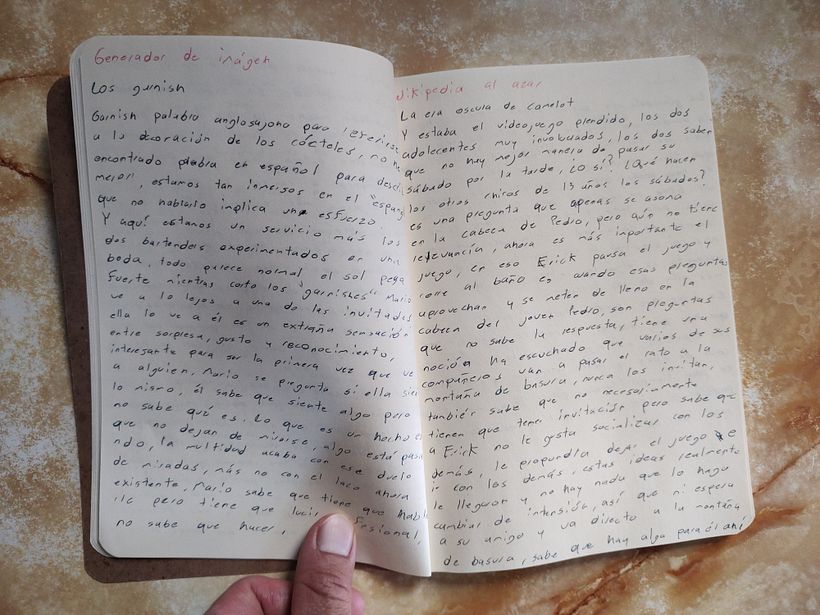 Generador de imágen
Los garnish
Garnish palabra anglosajona para referirse
a la decoración de los cócteles, no he
encontrado palabra en español para descri
mejor, estamos tan inmersos en el "espang
que no hablarlo implica un esfuerzo.
Y aquí estamos un servicio más los
dos bartenders experimentados en una
boda, todo parece normal el sol pega
fuerte mientras corto los "garnishes" Mario
ve a lo lejos a una de las invitadas
ella lo ve a él es un extraña sensación
entre sorpresa, gusto y reconocimiento,
interesante para ser la primera vez que ve
a alguien, Mario se pregunta si ella sien
lo mismo, él sabe que siente algo pero
no sabe qué es. Lo que es un hecho es
que no dejan de mirarse, algo está pasa
ndo, la multidud acaba con ese duelo
de miradas, más no con el lazo ahora
existente, Mario sabe que tiene que habl
le pero tiene que lucir fesional,
no sabe que hacer,
Wikipedia al azar
La era oscula de camelot
Y estaba el videojuego plendido, los dos
adolecentes muy involucrados, los dos saben
que no hay mejor manera de pasar su
sábado por la tarde, ¿O sí? ¿Qué hacen
los otros chicos de 13 años los sábados?
es una pregunta que apenas se asoma
en la cabeza de Pedro, pero aún no tiene
relevancia, ahora es más importante el
juego, en eso Erick pausa el juego y
corre al baño es cuando esas preguntas
aprovechan y se meten de lleno en la
cabeza del joven Pedro, son preguntas
que no sabe la respuesta, tiene una
noción ha escuchado que varios de sus
compañeros van a pasar el rato a la
montaña de basura, nunca los invitan,
también sabe que no necesariamente
tienen que tener invitación pero sabe que
a Erick no le gusta socializar con los
demás, le propundría dejar el juego e
ir con los demás, estas ideas realmente
le llegaron y no hay nada que lo haga
cambiar de intensión, así que ni espera
a su amigo y va directo a la montaña
de basura, sabe que hay algo para él ahí